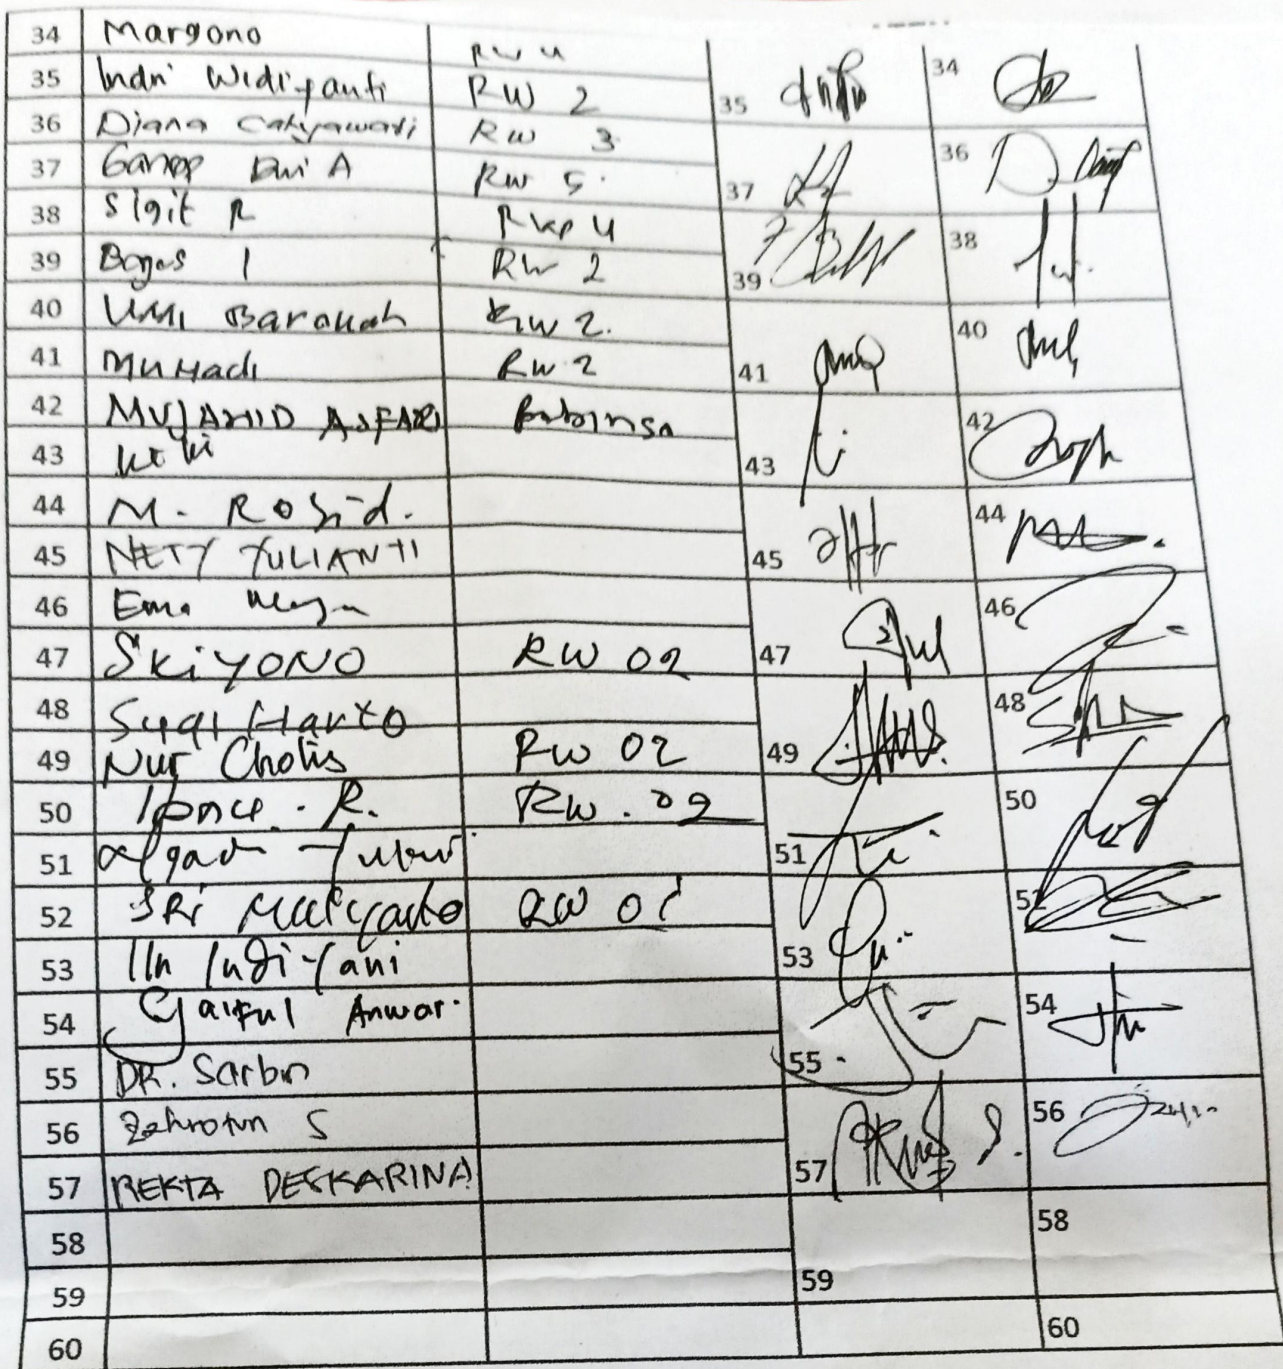 34 Margono RW 4
35 Indri Widiyanti RW 2 35 34
36 Diana Cahyawati RW 3 36
37 Ganep Dwi A RW 5 37
38 Sigit R RW 4 38
39 Bagus I RW 2 39
40 Umi Barokah RW 2. 40
41 Muhadi RW 2 41
42 MUJAHID ASFARI Babinsa 42
43 Kiki 43
44 M. Rosid. 44
45 NETY YULIANTI 45
46 Ema 46
47 SKiYONO RW 02 47
48 Sugi Harto 48
49 Nur Cholis RW 02 49
50 R. RW. 02 50
51 51
52 SRi Mulyanto RW 01 52
53 Iin Indriyani 53
54 Syaiful Anwar. 54
55 DR. Sarbin 55
56 Zahrotun S 56
57 REKTA DESKARINA 57
58 58
59 59
60 60